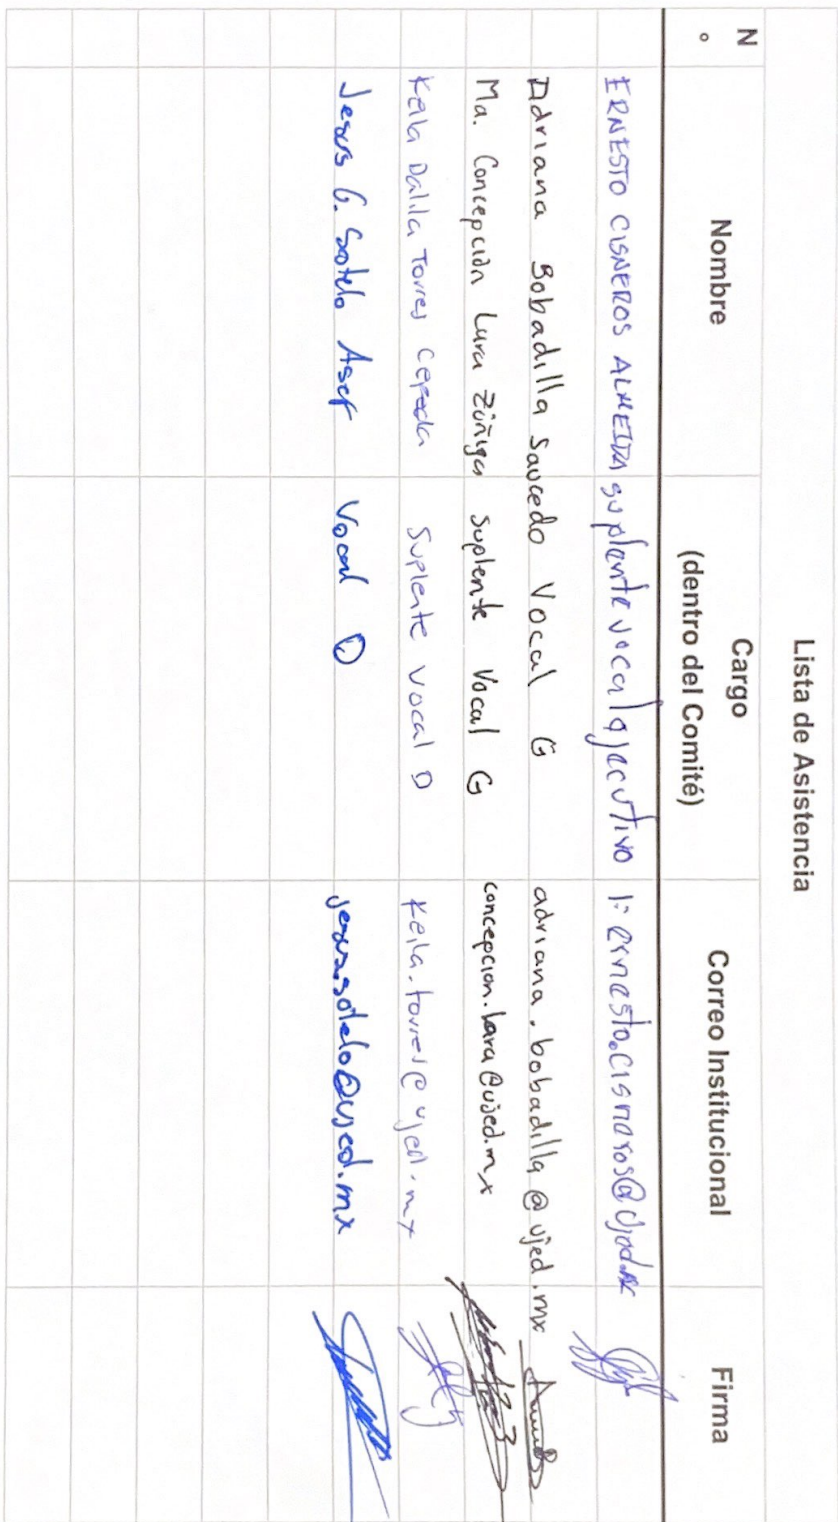 Lista de Asistencia
N° Nombre Cargo (dentro del Comité) Correo Institucional Firma
ERNESTO CISNEROS ALMEIDA suplente vocal ejecutivo ernesto.cisneros@ujed.mx
Adriana Bobadilla Saucedo Vocal G adriana.bobadilla@ujed.mx
Ma. Concepción Lara Zúñiga Suplente Vocal G concepcion.lara@ujed.mx
Keila Dalila Torres Cepeda Suplente Vocal D Keila.torres@ujed.mx
Jesus G. Sotelo Asef Vocal D jesus.sotelo@ujed.mx